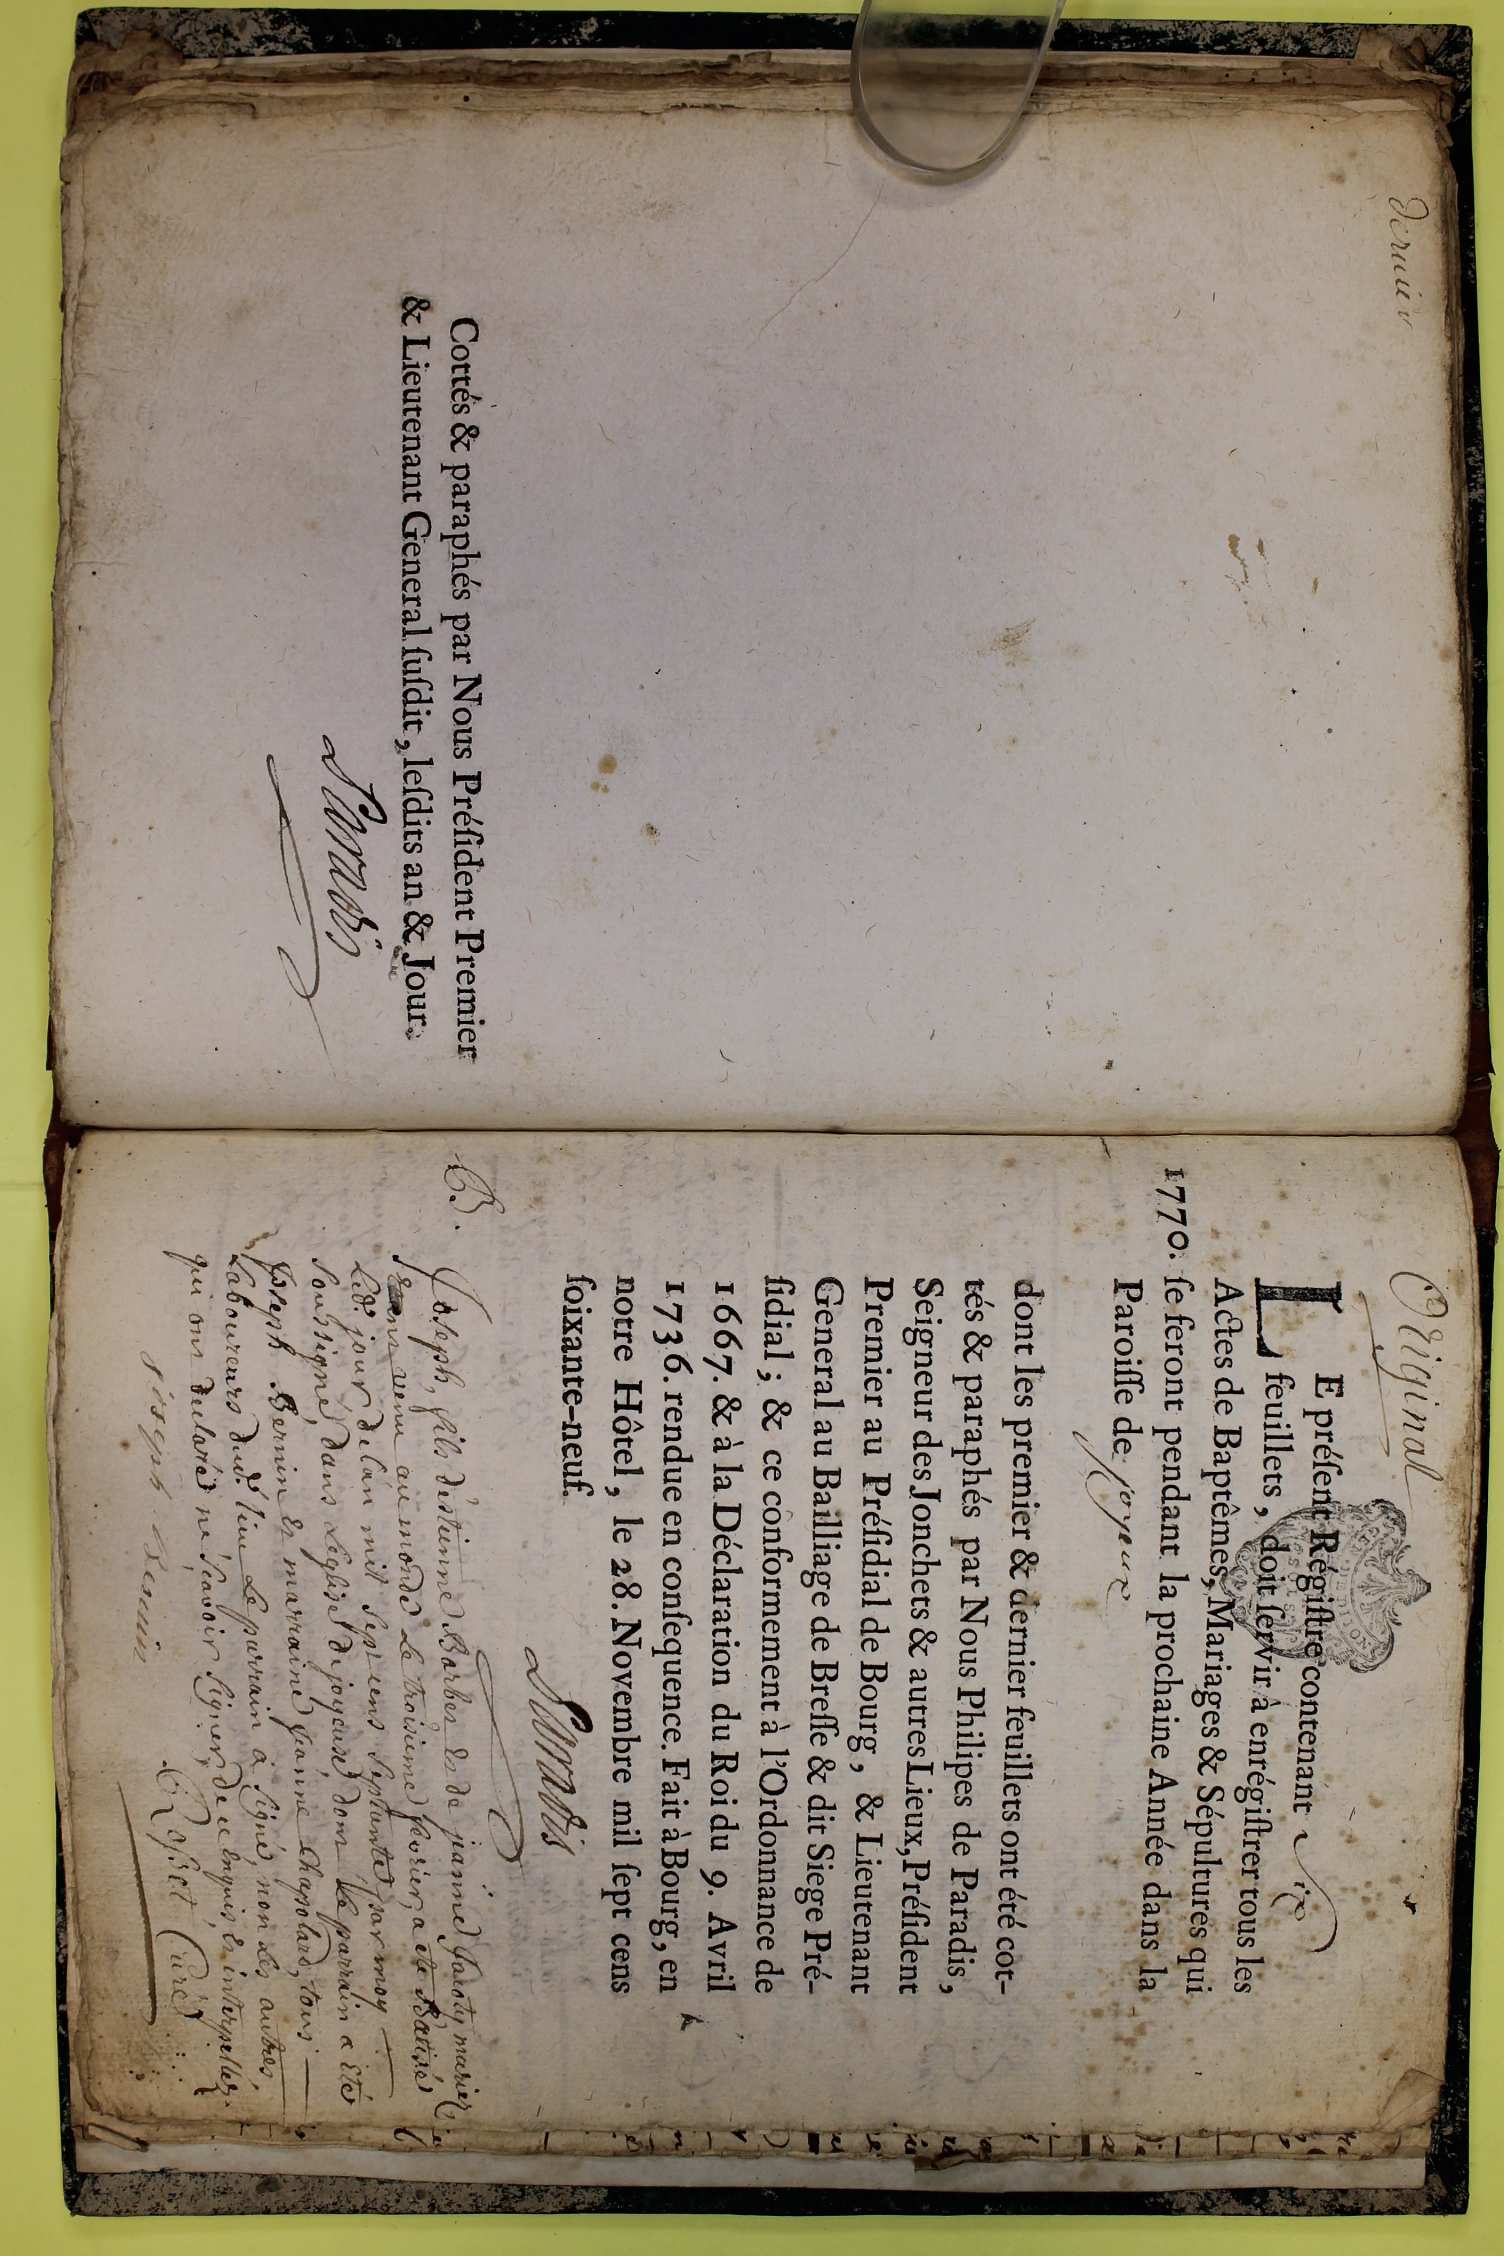 dernier
Cottés & paraphés par Nous Préſident Premier
& Lieutenant General ſuſdit, leſdits an & Jour.
Original
LE préſent Régiſtre contenant Six
feuillets, doit ſervir à enrégiſtrer tous les
Actes de Baptêmes, Mariages & Sépultures qui
1770. ſe feront pendant la prochaine Année dans la
Paroiſſe de Joyeux
dont les premier & dernier feuillets ont été cot-
tés & paraphés par Nous Philipes de Paradis,
Seigneur des Jonchets & autres Lieux, Préſident
Premier au Préſidial de Bourg, & Lieutenant
General au Bailliage de Breſſe & dit Siege Pré-
ſidial; & ce conformement à l'Ordonnance de
1667. & à la Déclaration du Roi du 9. Avril
1736. rendue en conſequence. Fait à Bourg, en
notre Hôtel, le 28. Novembre mil ſept cens
ſoixante-neuf.
B. Joseph, fils d'estienne Barbet et de jeanne mariez
venu au monde le troisieme fevrier a été Batisé
led. jour de l'an mil sept cens septante par moy
soussigné, dans l'eglise de joyeux, dont le parrain a été
joseph Bernin et marraine jeanne Chapolard, tous
Laboureurs dud. lieu le parrain a signé, non les autres
qui ont declaré ne sçavoir signer de ce enquis et interpellez.
joseph Bernin
Curé